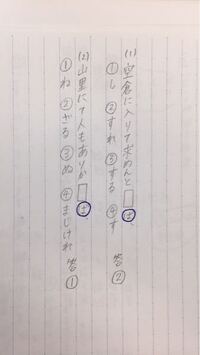 (1) 空倉に入りて求めんと□ば、
①し ②すれ ③する ④す 答②
(2) 山里にて人もありか□ば
①ね ②ざる ③ぬ ④まじけれ 答①